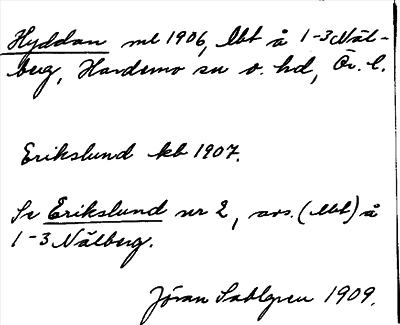 Hyddan ml 1906, lht å 1-3 Näl-
berg, Hardemo sn o. hd, Ör. l.
Erikslund kb 1907.
Se Erikslund nr 2, avs. (lht) å
1-3 Nälberg.
Jöran Sahlgren 1909.